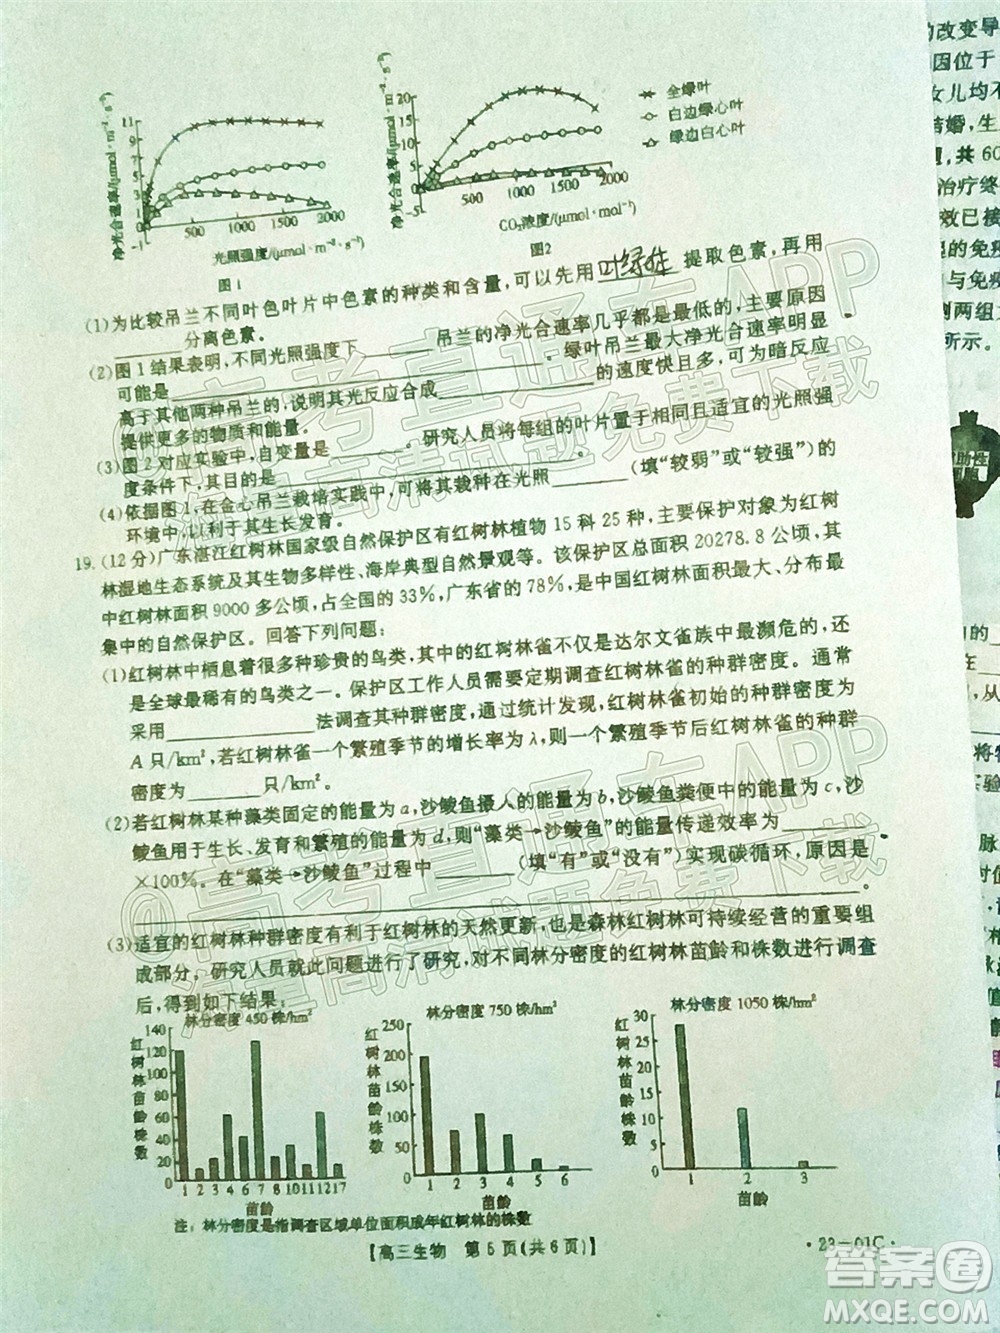 净光合速率/(μmol·m⁻²·s⁻¹)
11
9
7
5
3
1
-1
500 1000 1500 2000
光照强度/(μmol·m⁻²·s⁻¹)
图1
净光合速率/(μmol·m⁻²·s⁻¹)
20
15
10
5
0
-5
500 1000 1500 2000
CO₂浓度/(μmol·mol⁻¹)
图2
全绿叶
白边绿心叶
绿边白心叶
(1)为比较吊兰不同叶色叶片中色素的种类和含量,可以先用 提取色素,再用
分离色素。
(2)图1结果表明,不同光照强度下 吊兰的净光合速率几乎都是最低的,主要原因
可能是 。绿叶吊兰最大净光合速率明显
高于其他两种吊兰的,说明其光反应合成 的速度快且多,可为暗反应
提供更多的物质和能量。
(3)图2对应实验中,自变量是 。研究人员将每组的叶片置于相同且适宜的光照强
度条件下,其目的是 。
(4)依据图1,在金心吊兰栽培实践中,可将其栽种在光照 (填“较弱”或“较强”)的
环境中,以利于其生长发育。
19.(12分)广东湛江红树林国家级自然保护区有红树林植物15科25种,主要保护对象为红树
林湿地生态系统及其生物多样性、海岸典型自然景观等。该保护区总面积20278.8公顷,其
中红树林面积9000多公顷,占全国的33%,广东省的78%,是中国红树林面积最大、分布最
集中的自然保护区。回答下列问题:
(1)红树林中栖息着很多种珍贵的鸟类,其中的红树林雀不仅是达尔文雀族中最濒危的,还
是全球最稀有的鸟类之一。保护区工作人员需要定期调查红树林雀的种群密度。应
采用 法调查其种群密度,通过统计发现,红树林雀初始的种群密度为
A只/km²,若红树林雀一个繁殖季节的增长率为λ,则一个繁殖季节后红树林雀的种群
密度为 只/km²。
(2)若红树林某种藻类固定的能量为a,沙鲮鱼摄入的能量为b,沙鲮鱼粪便中的能量为c,沙
鲮鱼用于生长、发育和繁殖的能量为d,则“藻类→沙鲮鱼”的能量传递效率为
×100%。在“藻类→沙鲮鱼”过程中 (填“有”或“没有”)实现碳循环,原因是
。
(3)适宜的红树林种群密度有利于红树林的天然更新,也是森林红树林可持续经营的重要组
成部分。研究人员就此问题进行了研究,对不同林分密度的红树林苗龄和株数进行调查
后,得到如下结果:
林分密度 450株/hm²
红树林苗龄株数
140
120
100
80
60
40
20
0
1 2 3 4 6 7 8 10 11 12 17
苗龄
林分密度 750株/hm²
红树林苗龄株数
250
200
150
100
50
0
1 2 3 4 5 6
苗龄
林分密度 1050株/hm²
红树林苗龄株数
30
25
20
15
10
5
0
1 2 3
苗龄
注:林分密度是指调查区域单位面积成年红树林的株数
【高三生物 第5页(共6页)】
·23-01C·
@高考直通车APP
海量高清试题免费下载
@高考直通车APP
海量高清试题免费下载
答案圈
MXQE.COM
的改变导
因位于
女儿均不
结婚,生
,共60
治疗终
效已被
的免疫
与免疫
测两组
所示。
助性